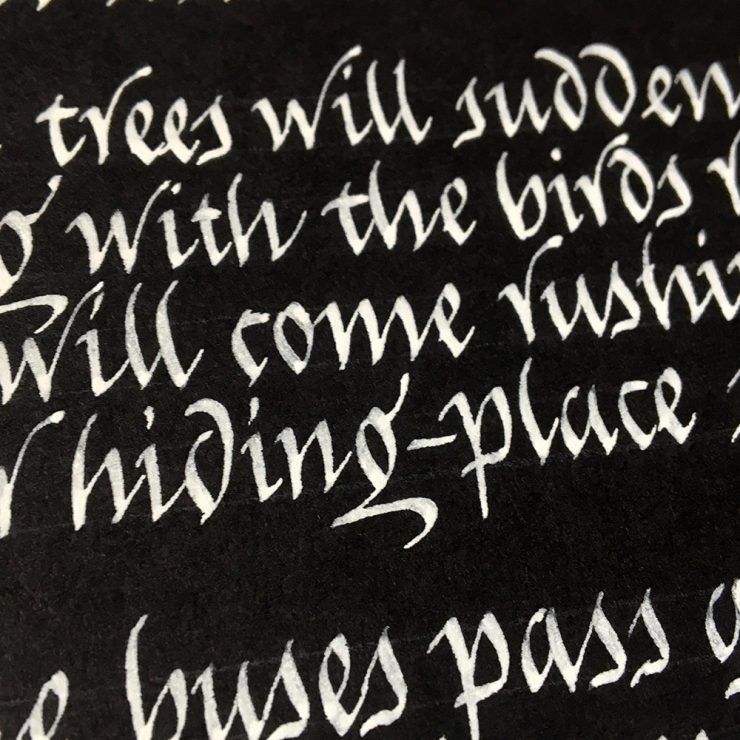 trees will sudden
with the birds
will come rushi
hiding-place
buses pass